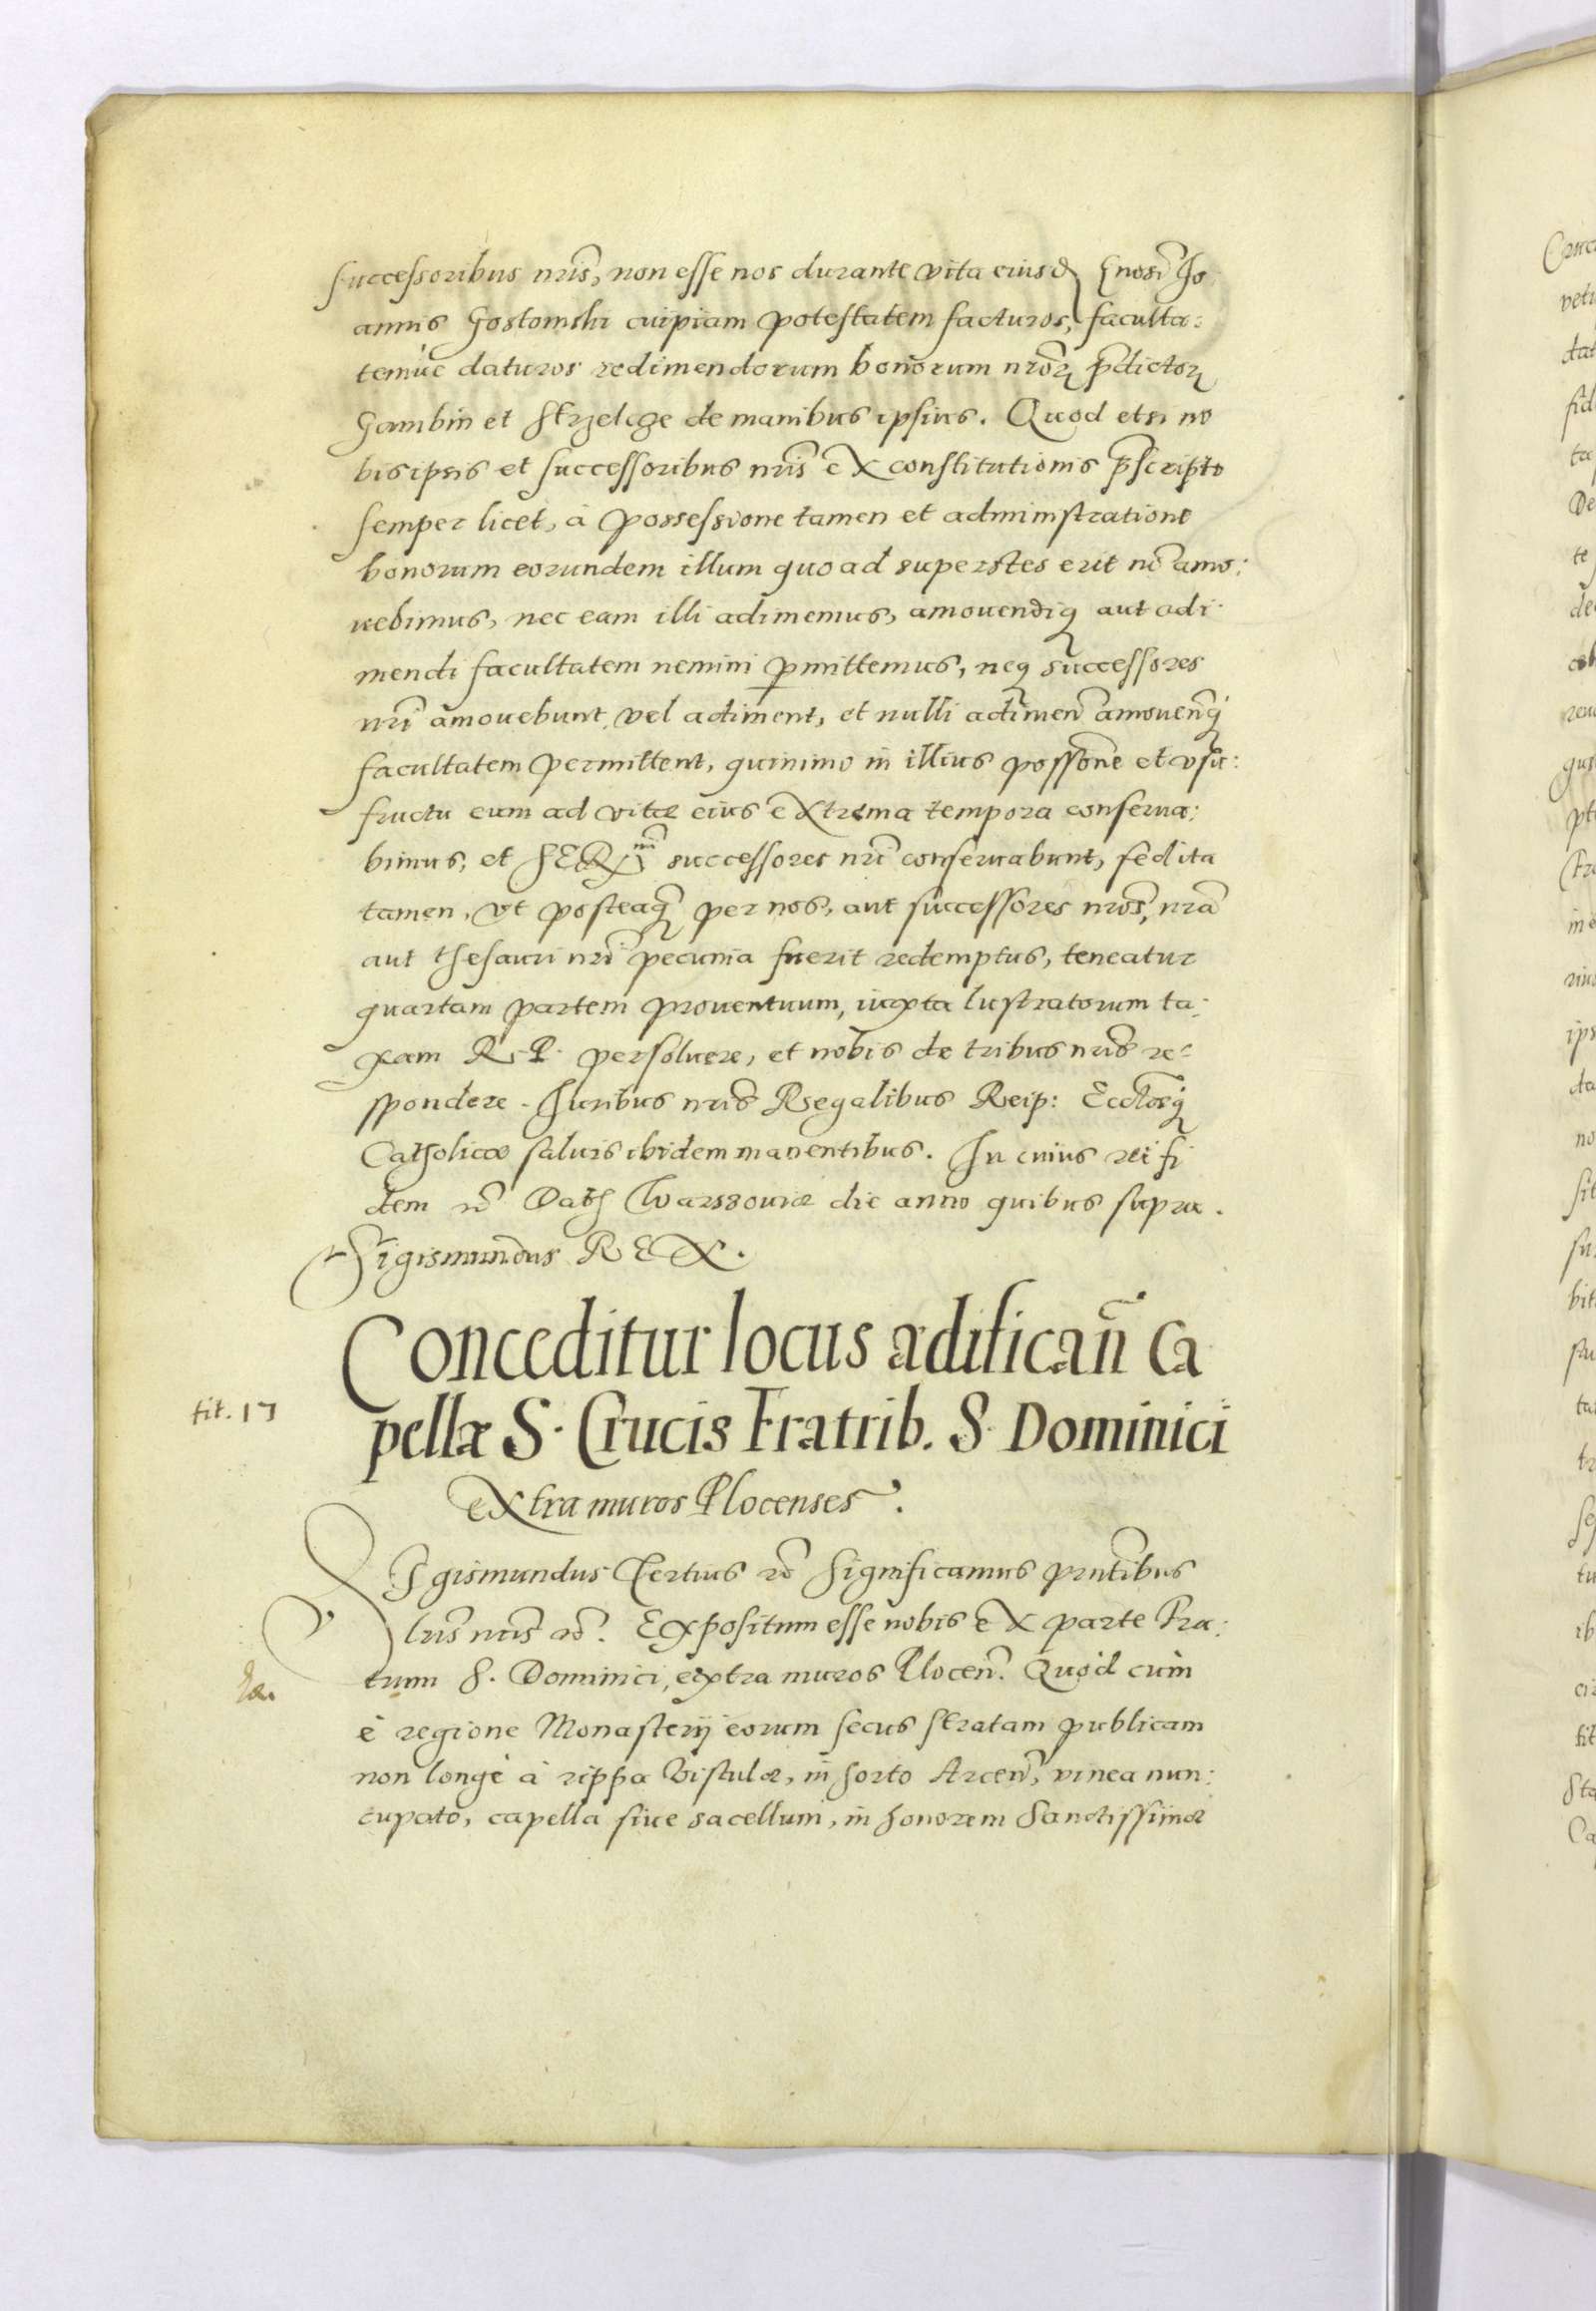 successoribus nris, non esse nos durante vita eiusd Gnosi Jo
annis Gostomski cuipiam potestatem facturos, faculta:
temue daturos redimendorum bonorum nrorꝝ p̃dictorꝝ
Gambin et Strzelcze de manibus ipsius. Quod etsi no
bis ipsis et successoribus nris ex constitutionis p̃scripto
semper licet, à possessione tamen et administratione
bonorum eorundem illum quoad superstes erit nõ amo:
uebimus, nec eam illi adimemus, amouendiq aut adi
mendi facultatem nemini ꝑmittemus, neq successores
nri amouebunt vel adiment, et nulli adimen̄ amouen̄q
facultatem permittent, quinimo in illius possone et vsu:
fructu eum ad vitæ eius extrema tempora conserua:
bimus, et SERmi successores nri conseruabunt, sed ita
tamen, vt posteaq̃ per nos, aut successores nros, nrã
aut thesauri nri pecunia fuerit redemptus, teneatur
quartam partem prouentuum, iuxta lustratorum ta:
xam R. P. persoluere, et nobis de tribus nris re:
spondere. Juribus nris Regalibus Reip: Eccłæq
Catholicæ saluis ibidem manentibus. In cuius rei fi
dem rc̃ Datʒ Warssouiæ die anno quibus supra.
Sigismundus REX.
Conceditur locus ædifican̄ Ca
pellæ S. Crucis Fratrib. S. Dominici
tit. 17
extra muros Plocenses.
SIgismundus Tertius rc̃ Significamus pntibus
lris nris rc̃. Expositum esse nobis ex parte Fra:
trum S. Dominici, extra muros Plocen̄. Quòd cùm
è regione Monasterij eorum secus stratam publicam
non longè à rippa Vistulæ, in horto Arcen̄, vinea nun:
cupato, capella siue sacellum, in honorem Sanctissimæ